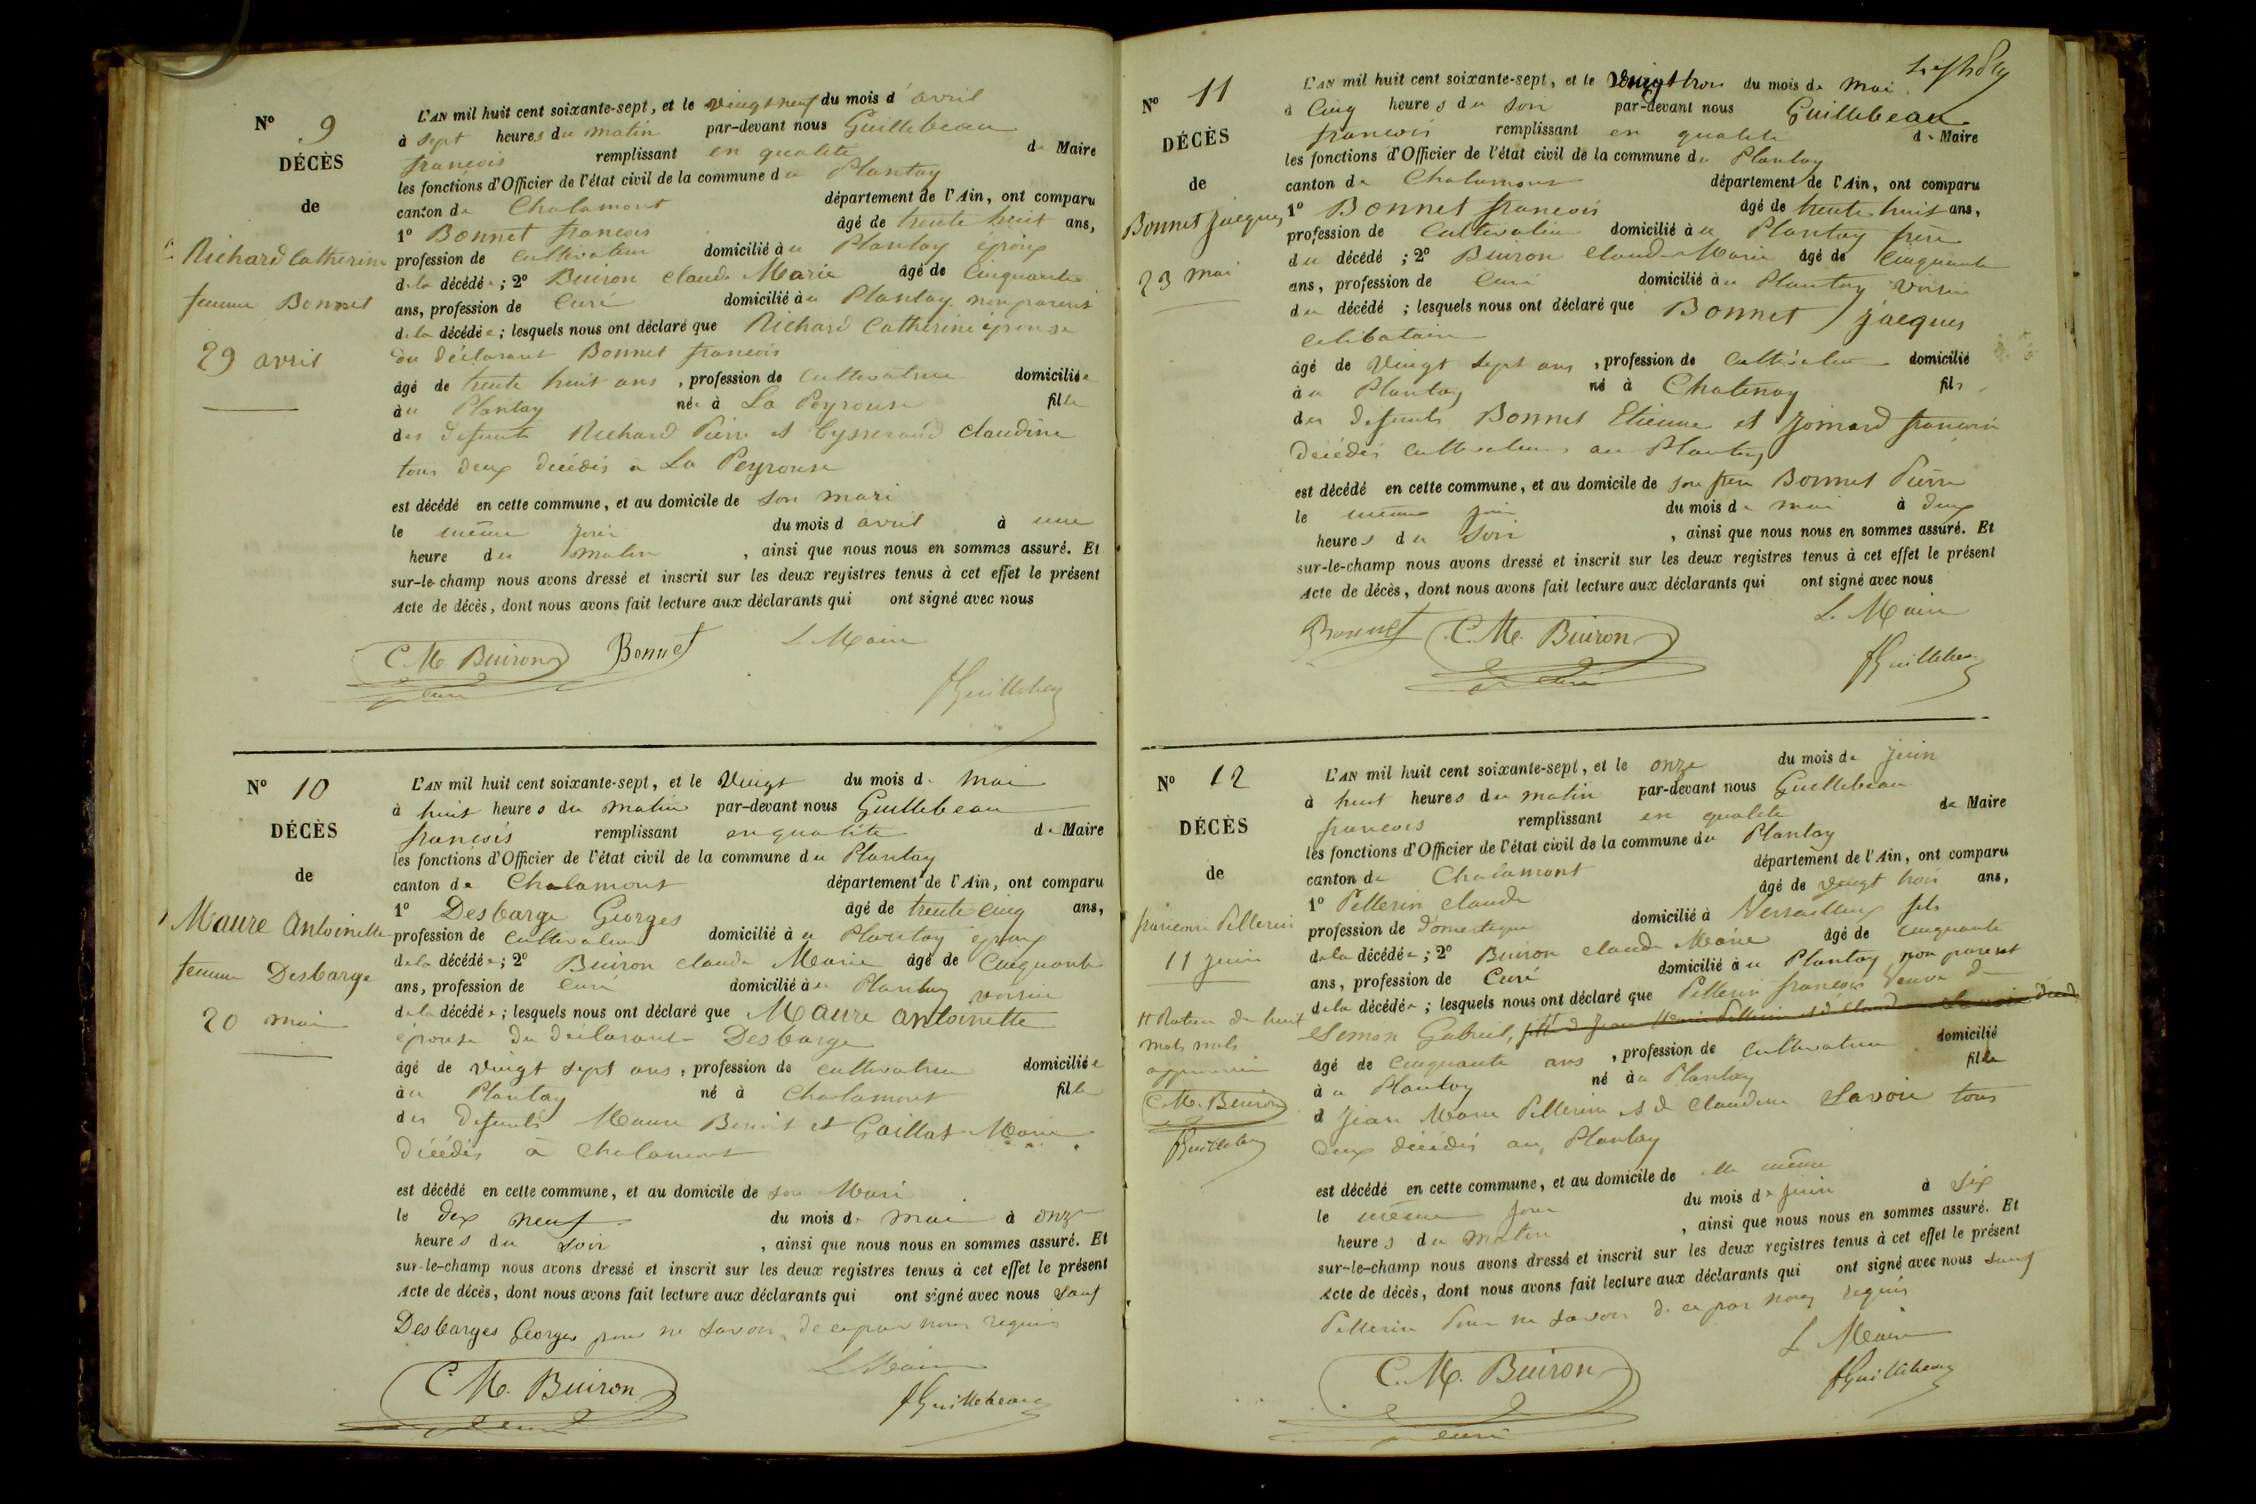 N° 9
DÉCÈS
de
Richard Catherine
femme Bonnet
29 avril
L'AN mil huit cent soixante-sept, et le vingt neuf du mois d'avril
à sept heures du matin par-devant nous Guillebeau
francois remplissant en qualité de Maire
les fonctions d'Officier de l'état civil de la commune du Plantay
canton de Chalamont département de l'Ain, ont comparu
1° Bonnet francois âgé de trente huit ans,
profession de cultivateur domicilié au Plantay époux
de la décédée; 2° Buiron Claude Marie âgé de Cinquante
ans, profession de Curé domicilié au Plantay non parent
de la décédée; lesquels nous ont déclaré que Richard Catherine épouse
du déclarant Bonnet francois
âgé de trente huit ans, profession de cultivatrice domiciliée
au Plantay née à La Peyrouse fille
des defunts Richard Pierre et Claudine
tous deux décédés à La Peyrouse
est décédé en cette commune, et au domicile de son mari
le même jour du mois d avril à une
heure du matin, ainsi que nous nous en sommes assuré. Et
sur-le-champ nous avons dressé et inscrit sur les deux registres tenus à cet effet le présent
Acte de décès, dont nous avons fait lecture aux déclarants qui ont signé avec nous
C. M. Buiron Bonnet L Maire
curé fGuillebeau
N° 10
DÉCÈS
de
Maure Antoinette
femme Desbarge
20 mai
L'AN mil huit cent soixante-sept, et le Vingt du mois de mai
à huit heures du matin par-devant nous Guillebeau
francois remplissant en qualité de Maire
les fonctions d'Officier de l'état civil de la commune du Plantay
canton de Chalamont département de l'Ain, ont comparu
1° Desbarge Georges âgé de trente cinq ans,
profession de cultivateur domicilié au Plantay époux
de la décédée; 2° Buiron Claude Marie âgé de Cinquante
ans, profession de curé domicilié au Plantay voisin
de la décédée; lesquels nous ont déclaré que Maure Antoinette
épouse du déclarant Desbarge
âgé de vingt sept ans, profession de cultivatrice domiciliée
au Plantay né à Chalamont fille
des defunts Maure Benoit et Gaillat Marie
décédés à Chalamont
est décédé en cette commune, et au domicile de son Mari
le dix neuf du mois de mai à onze
heures du soir, ainsi que nous nous en sommes assuré. Et
sur-le-champ nous avons dressé et inscrit sur les deux registres tenus à cet effet le présent
Acte de décès, dont nous avons fait lecture aux déclarants qui ont signé avec nous sauf
Desbarges Georges pour ne savoir de ce par nous requis
C. M. Buiron L Maire
curé fGuillebeau
N° 11
DÉCÈS
de
Bonnet jacques
23 mai
L'AN mil huit cent soixante-sept, et le vingt trois du mois de mai
à Cinq heures du soir par-devant nous Guillebeau
francois remplissant en qualité de Maire
les fonctions d'Officier de l'état civil de la commune du Plantay
canton de Chalamont département de l'Ain, ont comparu
1° Bonnet francois âgé de trente huit ans,
profession de cultivateur domicilié au Plantay frère
du décédé; 2° Buiron Claude Marie âgé de Cinquante
ans, profession de Curé domicilié au Plantay voisin
du décédé; lesquels nous ont déclaré que Bonnet jacques
celibataire
âgé de vingt sept ans, profession de cultivateur domicilié
au Plantay né à Chatenay fils
des defunts Bonnet Etienne et Jomard
Décédés cultivateurs au Plantay
est décédé en cette commune, et au domicile de son frère Bonnet Pierre
le même jour du mois de mai à deux
heures du soir, ainsi que nous nous en sommes assuré. Et
sur-le-champ nous avons dressé et inscrit sur les deux registres tenus à cet effet le présent
Acte de décès, dont nous avons fait lecture aux déclarants qui ont signé avec nous
Bonnet C. M. Buiron L. Maire
curé fGuillebeau
N° 12
DÉCÈS
de
francoise Pellerin
11 juin
Rature de huit
mots nuls
C. M. Buiron
fGuillebeau
L'AN mil huit cent soixante-sept, et le onze du mois de juin
à huit heures du matin par-devant nous Guillebeau
francois remplissant en qualité de Maire
les fonctions d'Officier de l'état civil de la commune du Plantay
canton de Chalamont département de l'Ain, ont comparu
1° Pellerin Claude âgé de vingt trois ans,
profession de domestique domicilié à Versailleux fils
de la décédée; 2° Buiron Claude Marie âgé de cinquante
ans, profession de Curé domicilié au Plantay non parent
de la décédée; lesquels nous ont déclaré que Pellerin françoise Veuve de
Simon Gabriel,
âgé de cinquante ans, profession de cultivatrice domicilié
au Plantay né au Plantay fille
d Jean Marie Pellerin et de Claudine Savoie tous
deux décédés au Plantay
est décédé en cette commune, et au domicile de elle même
le même jour du mois de juin à six
heures du matin, ainsi que nous nous en sommes assuré. Et
sur-le-champ nous avons dressé et inscrit sur les deux registres tenus à cet effet le présent
Acte de décès, dont nous avons fait lecture aux déclarants qui ont signé avec nous sauf
Pellerin Pour ne savoir de ce par nous requis
C. M. Buiron L Maire
curé fGuillebeau